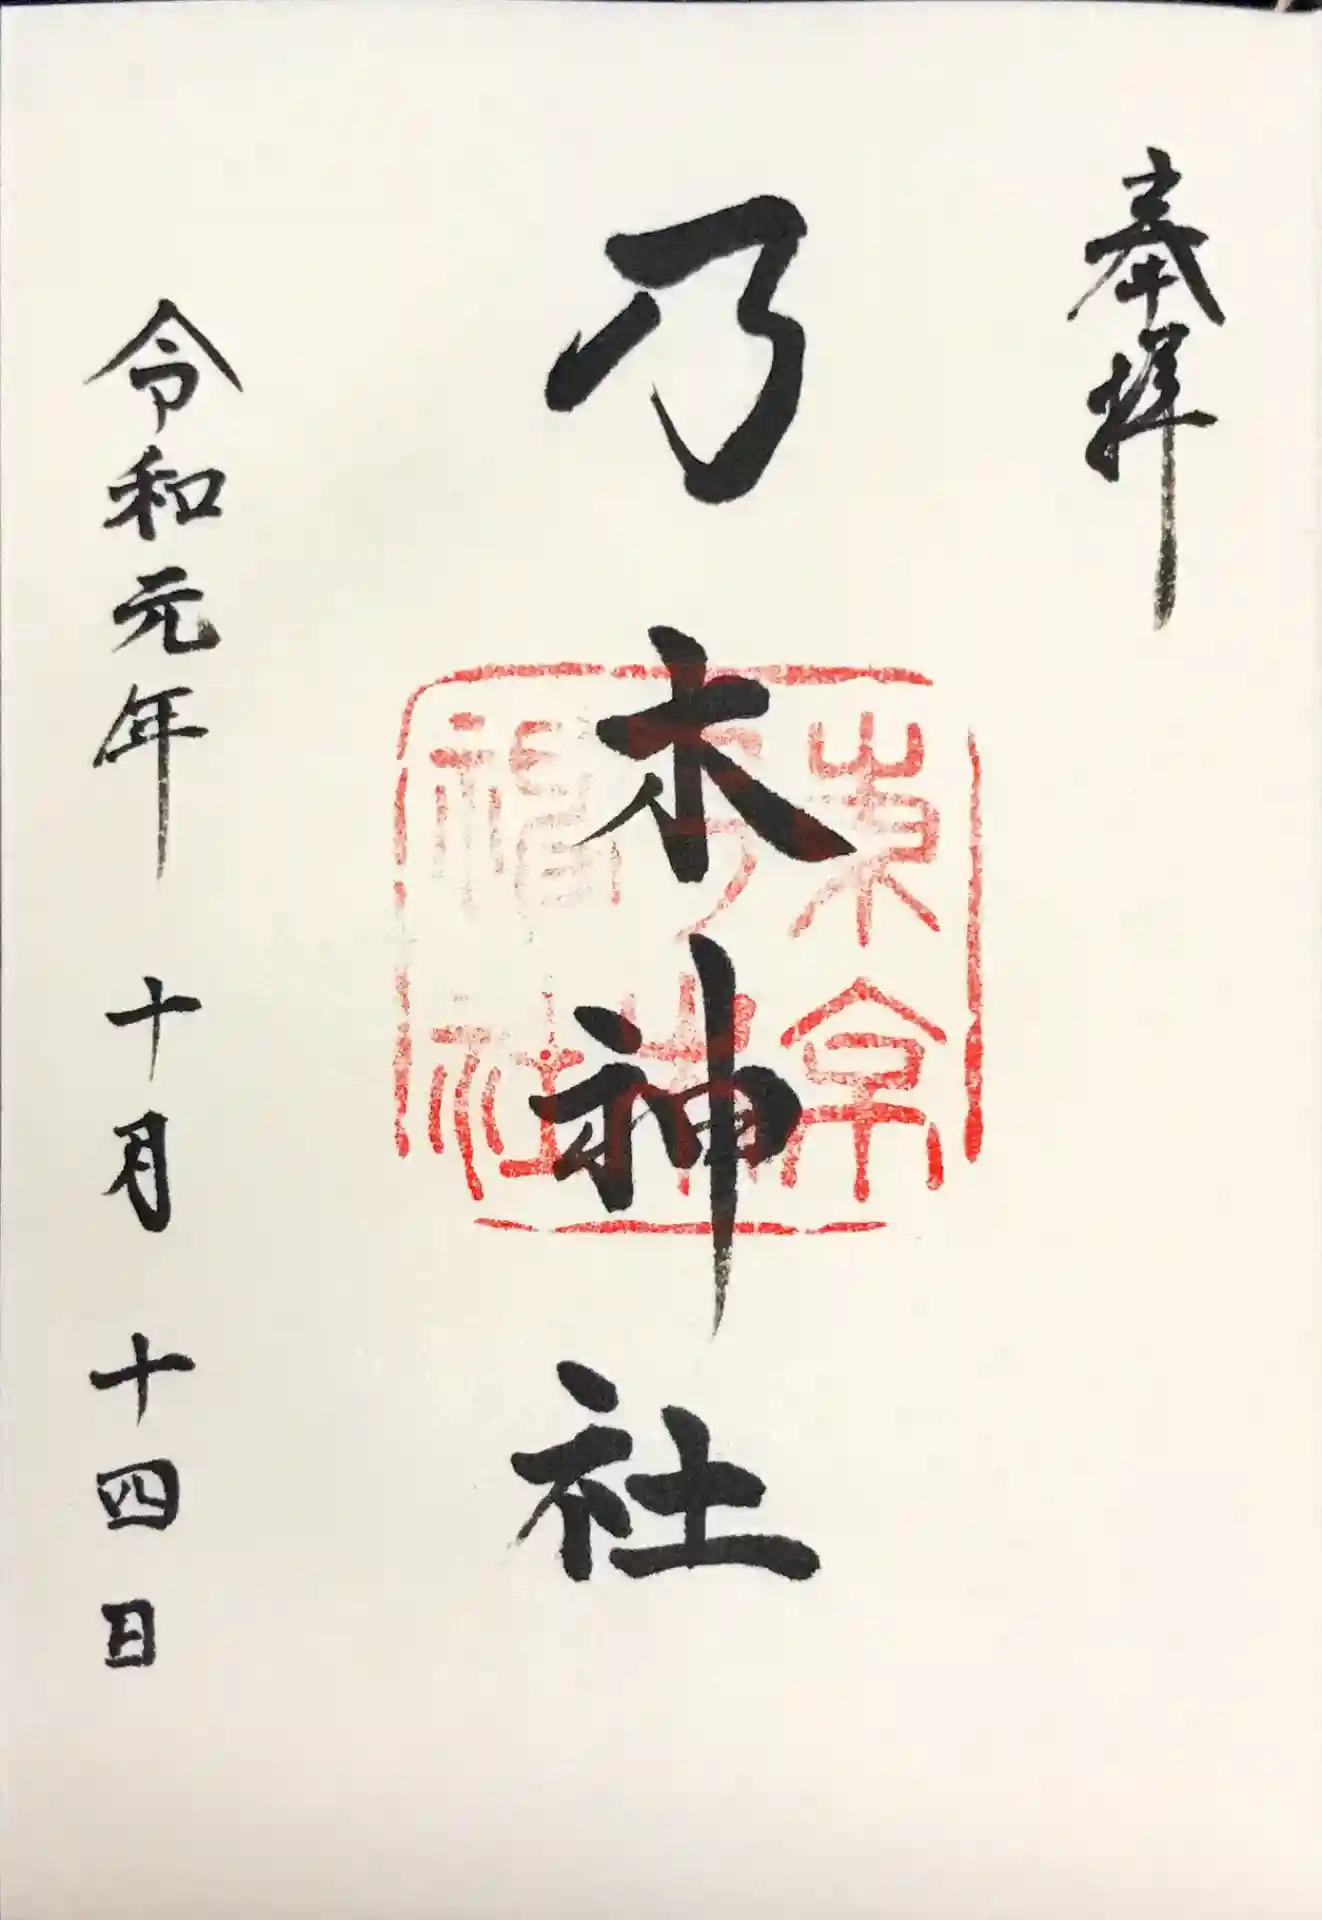 奉拝
乃木神社
東京
乃木
神社
令和元年 十月 十四日